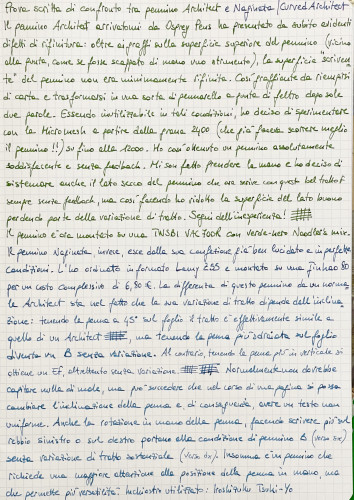 Prova scritta di confronto tra pennino Architect e Naginata/Curved Architect
Il pennino Architect arrivatomi da Osprey Pens ha presentato da subito evidenti
difetti di rifinitura: oltre ai graffi sulla superficie superiore del pennino (vicino
alla punta, come se fosse scappato di mano uno strumento), la superficie scriven
te" del pennino non era minimamente rifinita. Così graffiante da riempirsi
di carta e trasformarsi in una sorta di pennarello a punta di feltro dopo sole
due parole. Essendo inutilizzabile in tali condizioni, ho deciso di sperimentare
con la Micromesh a partire dalla grana 2400 (che già faceva scorrere meglio
il pennino!!) su fino alla 12000. Ho così ottenuto un pennino assolutamente
soddisfacente e senza feedback. Mi son fatto prendere la mano e ho deciso di
sistemare anche il lato secco del pennino che ora scrive con questo bel tratto F
sempre senza feedback, ma così facendo ho ridotto la superficie del lato buono
perdendo parte della variazione di tratto. Segni dell'inesperienza!
Il pennino è ora montato su una TWSBI VAC 700R con verde-nero Noodler's mix.
Il pennino Naginata, invece, esce dalla sua confezione già ben lucidato e in perfette
condizioni. L'ho ordinato in formato Lamy Z55 e montato su una Jinhao 80
per un costo complessivo di 6,50 €. La differenza di questo pennino da un norma
le Architect sta nel fatto che la sua variazione di tratto dipende dall'inclina
zione: tenendo la penna a 45° sul foglio il tratto è effettivamente simile a
quello di un Architect, ma tenendo la penna più sdraiata sul foglio
diventa un B senza variazione. Al contrario, tenendo la penna più in verticale si
ottiene un EF, altrettanto senza variazione. Normalmente non dovrebbe
capitare nulla di male, ma può succedere che nel corso di una pagina si possa
cambiare l'inclinazione della penna e, di conseguenza, avere un testo non
uniforme. Anche la rotazione in mano della penna, facendo scrivere più sul
rebbio sinistro o sul destro portano alla condizione di pennino B
senza variazione di tratto sostanziale. Insomma è un pennino che
richiede una maggiore attenzione alla posizione della penna in mano, ma
che permette più versatilità. Inchiostro utilizzato: Iroshizuku Tsuki-Yo